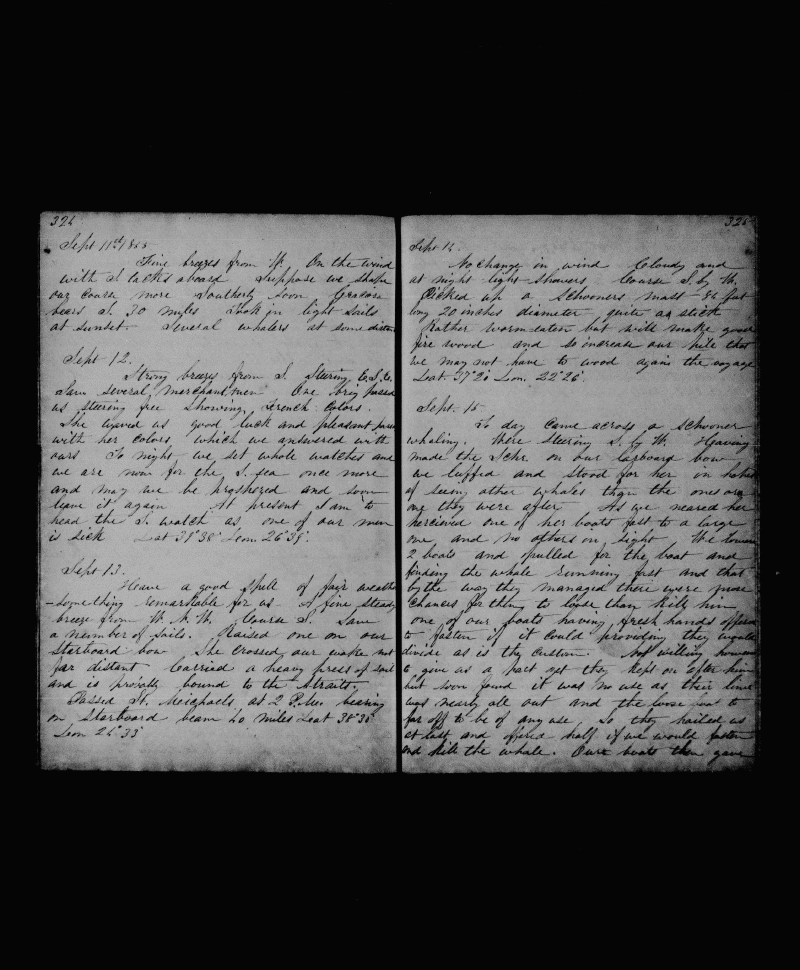 324
Sept 11th 1855
Fine breezes from W. On the wind
with S tacks aboard Suppose we shape
our course more Southerly soon
bears S. 30 miles Took in light sails
at sunset. Several whalers at some distan
Sept 12.
Strong breezes from S. Steering E.S.E.
Saw several merchantmen One brig passed
us steering free showing French colors.
She us good luck and pleasant
with her colors, which we answered with
ours To night we set whole watches and
we are now for the S. sea once more
and may we be prospered and soon
leave it again At present I am to
head the S. watch as one of our men
is sick Lat 39°38' Lon. 26°39'.
Sept 13.
Have a good spell of fair weather
-something remarkable for us- A fine steady
breeze from W.N.W. Course S. Saw
a number of sails. Raised one on our
starboard bow She crossed our wake not
far distant Carried a heavy press of sail
and is probably bound to the Straits.
Passed St. Meichaels at 2 P.M. bearing
on starboard beam 40 miles Lat 38°36'
Lon 24°33'
325
Sept 14.
No change in wind Cloudy and
at night light showers Course S. by W.
Picked up a Schooners mast 86 feet
long 20 inches diameter quite a stick
Rather worm eaten but will make good
fire wood and so increase our pile that
we may not have to wood again the voyage
Lat 37°20 Lon. 22°26'.
Sept. 15
To day came across a schooner
whaling. Were steering S. by W. Having
made the Schr. on our larboard bow
we luffed and stood for her in hopes
of seeing other whales than the ones or
one they were after As we neared her
percieved one of her boats fast to a large
one and no others in sight We lowered
2 boats and pulled for the boat and
finding the whale running fast and that
by the way they managed there were more
chances for them to loose than kill him
one of our boats having fresh hands offered
to fasten if it could providing they would
divide as is the custom. Not willing however
to give us a part yet they kept on after him
but soon found it was no use as their line
was nearly all out and the loose boat to
far off to be of any use, so they hailed us
at last and offered half if we would fasten
and kill the whale. Our boats then gave